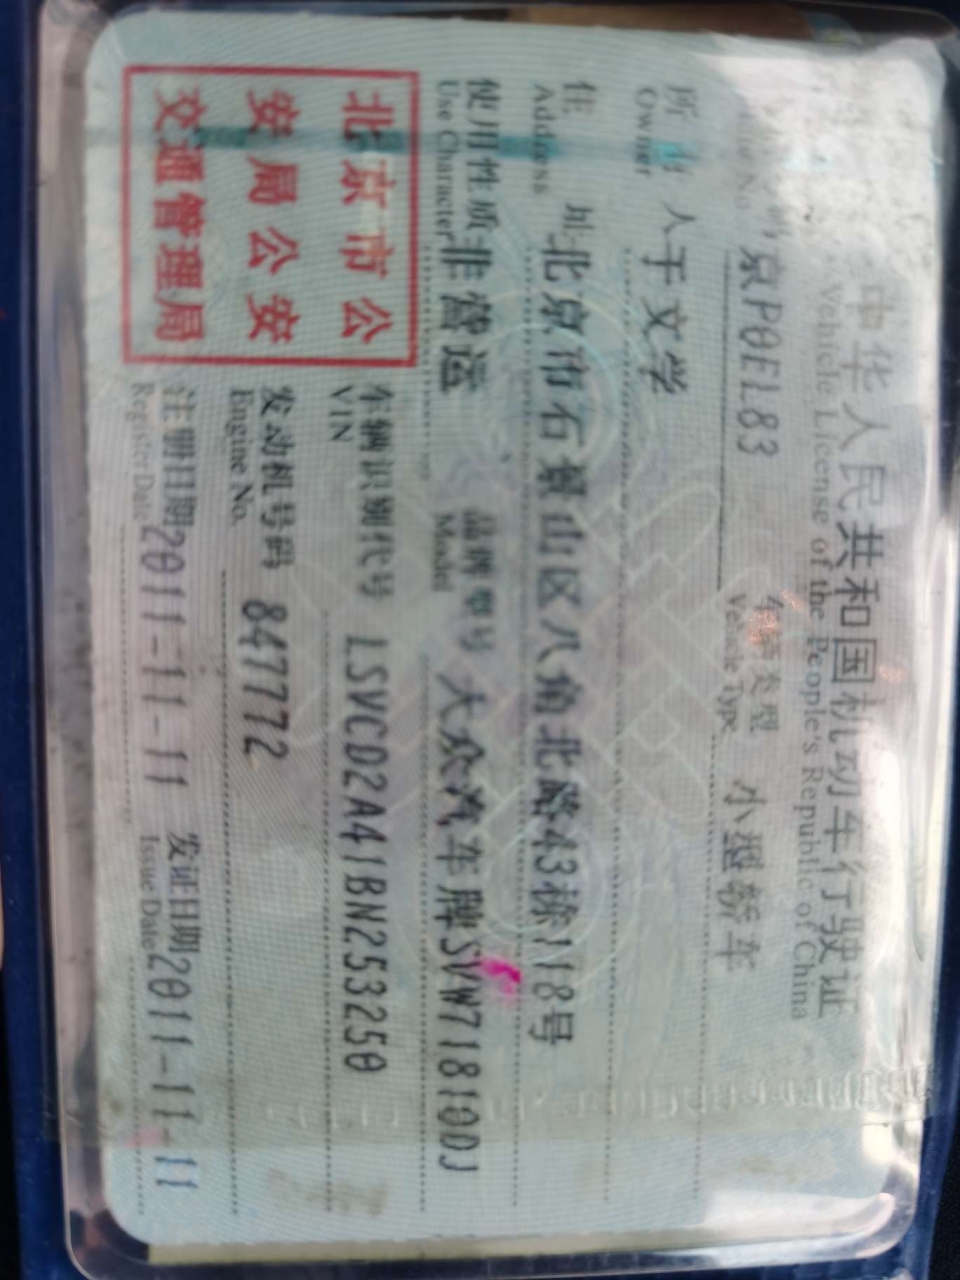 中华人民共和国机动车行驶证
Vehicle License of the People's Republic of China
京P0EL83 车辆类型 小型轿车
Vehicle Type
所有人 于文学
Owner
住址 北京市石景山区八角北路43栋118号
Address
使用性质 非营运 品牌型号 大众汽车牌SVW71810DJ
Use Character Model
北京市公
安局公安
交通管理局
车辆识别代号 LSVCD2A41BN253250
VIN
发动机号码 847772
Engine No.
注册日期 2011-11-11 发证日期 2011-11-11
Register Date Issue Date